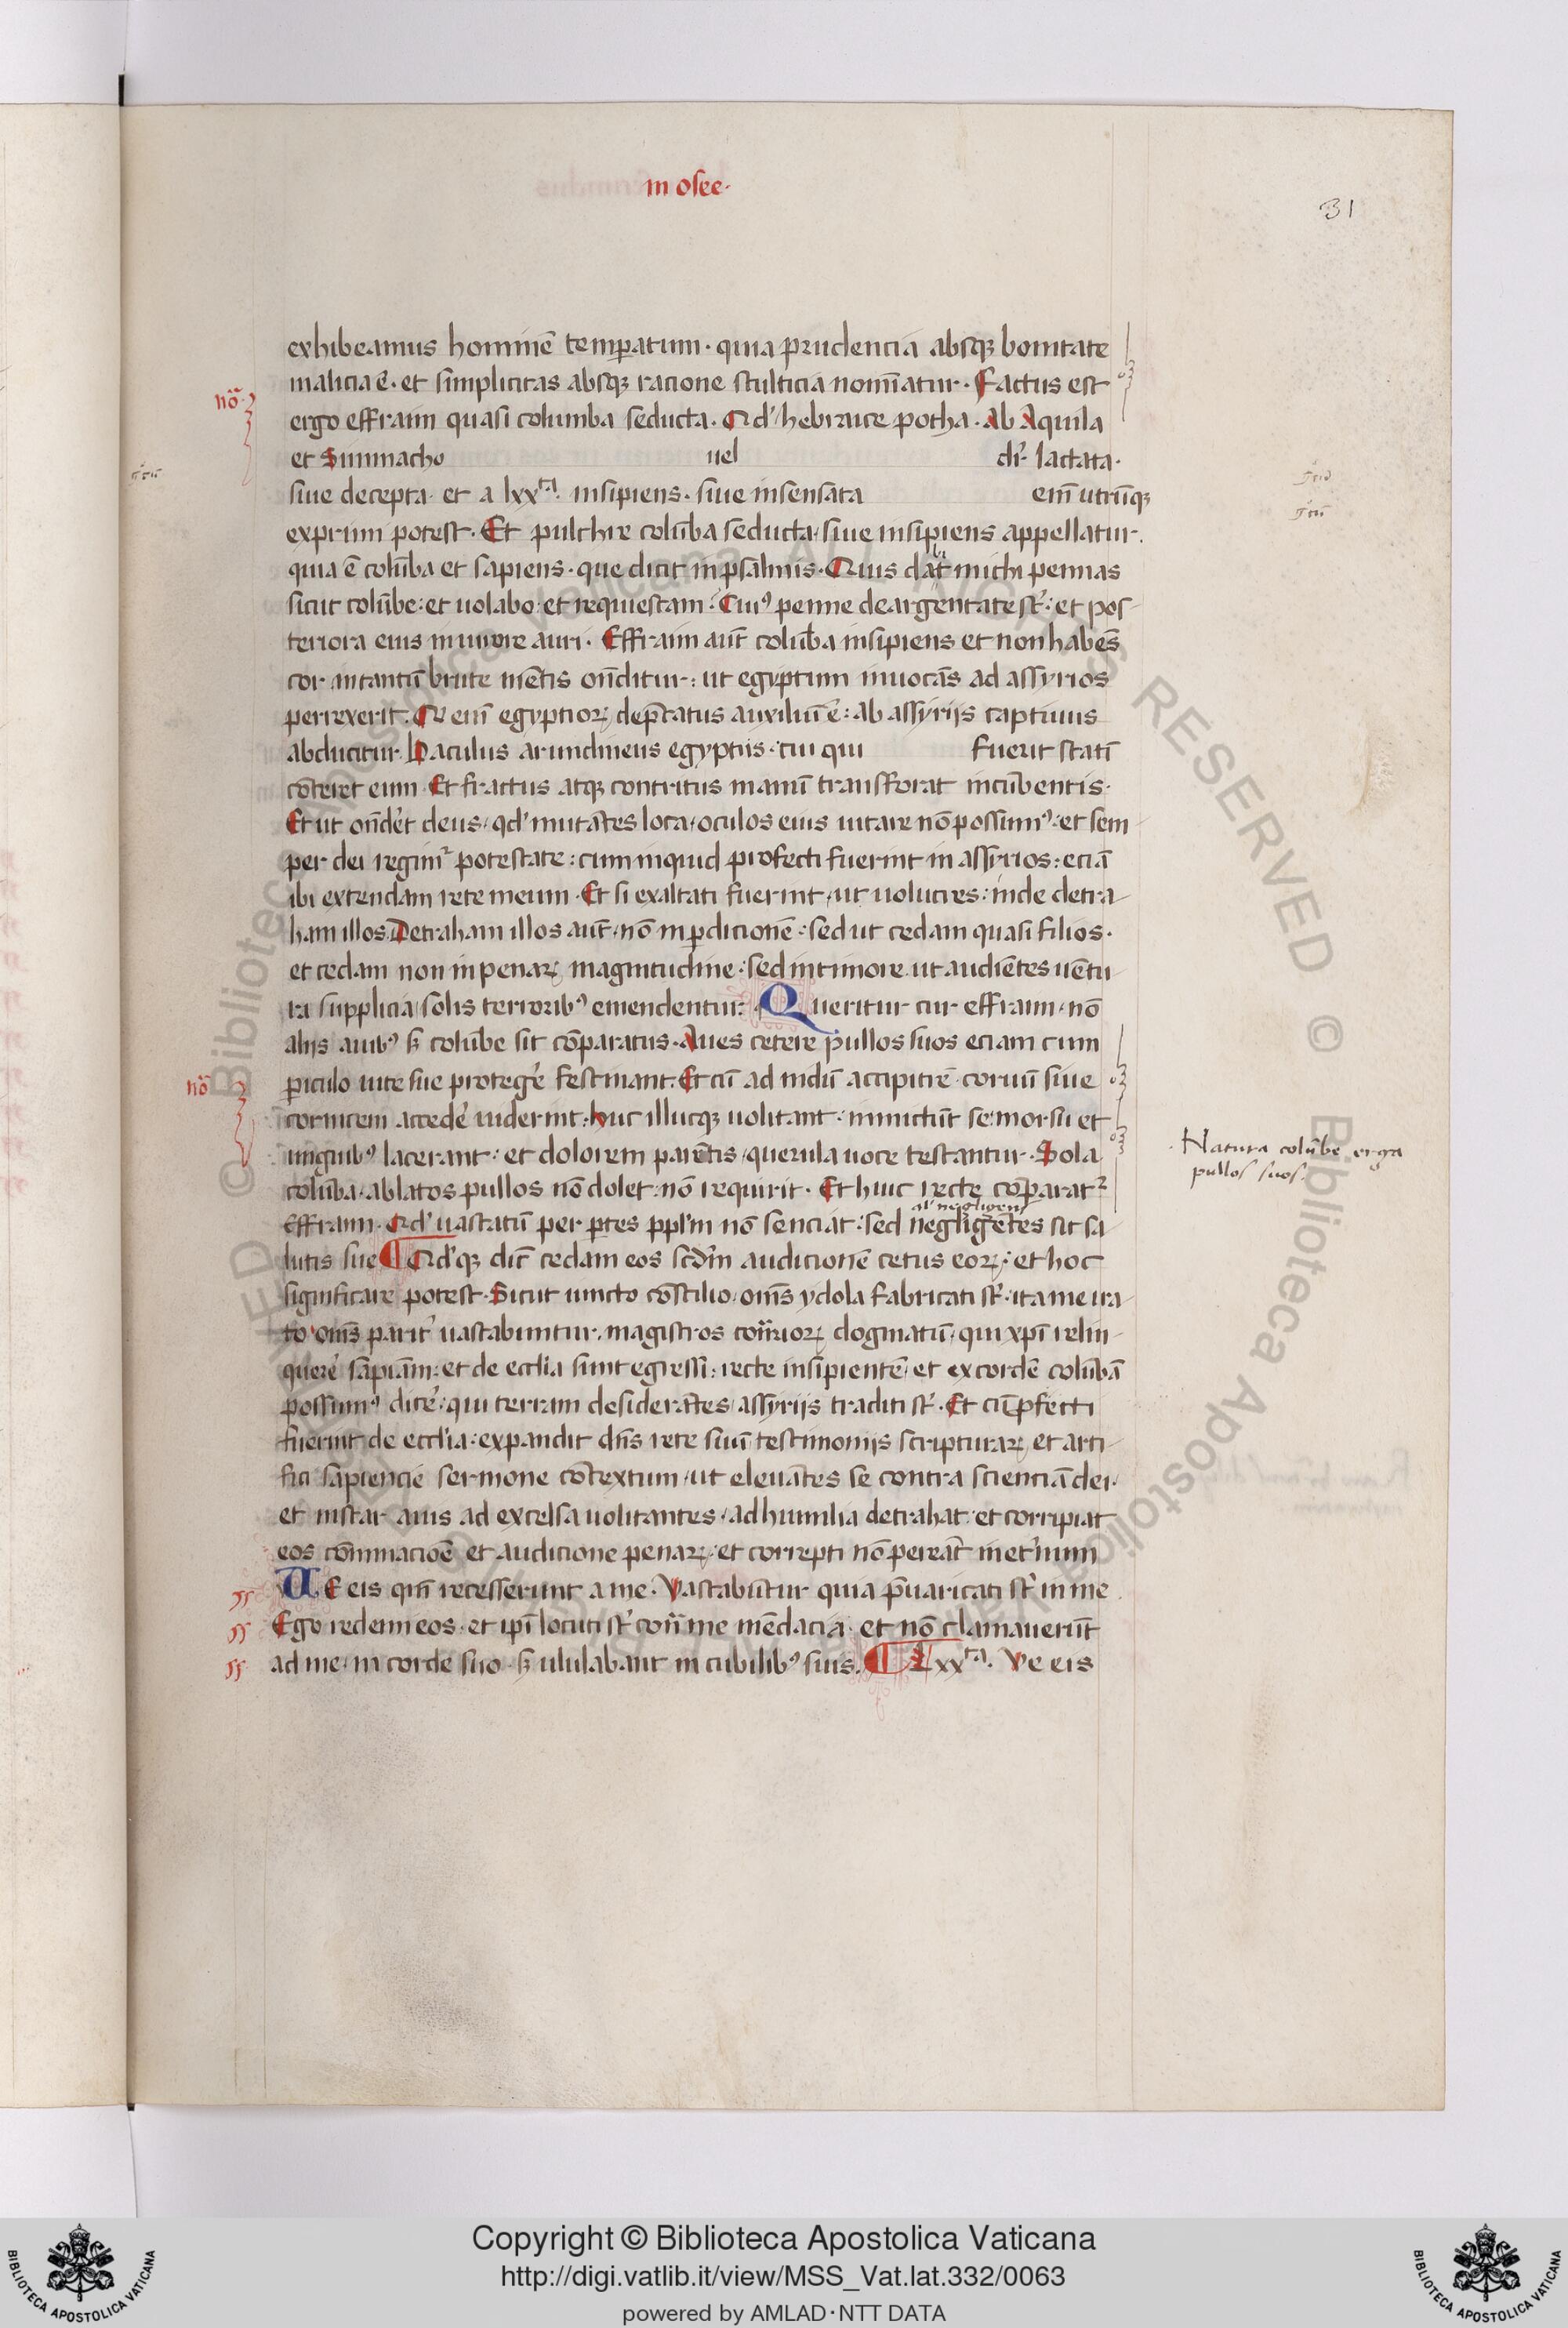 in osee·
31
exhibeamus hominē temꝑatum· quia prudencia absqꝫ bonitate
malicia ē· et simplicitas absqꝫ racione stulticia nomīatur· Factus est
nō·
ergo effraim quasi columba seducta· Qd' hebraice potha· Ab Aquila
et Simmacho uel dr̄· lactata·
siue decepta· et a lxxta· insipiens· siue insensata em̄ utrūqꝫ
exprimi potest· Et pulchre colūba seducta siue insipiens appellatur·
quia ē colūba et sapiens· que dicit in psalmis· Quis dabit michi pennas
sicut colūbe: et uolabo: et requiescam: Cuiꝰ penne deargentate st̄: et pos-
teriora eius in uirore auri· Effraim aut̄ colūba insipiens et non habēs
cor intantū brute mētis on̄ditur: ut egyptum inuocās ad assyrios
perrexerit· Qr em̄ egyptioꝝ dep̄catus auxiliū ē: ab assyrijs captiuus
abducitur· Baculus arundineus egyptus· cui qui fuerit statī
cōteret eum· Et fractus atqꝫ contritus manū transforat incūbentis·
Et ut on̄dēt deus· qd' mutātes loca· oculos eius uitare nō possumꝰ: et sem
per dei regimr potestate: cum inquid profecti fuerint in assyrios: eciā
ibi extendam rete meum· Et si exaltati fuerint· ut uolucres: inde detra-
ham illos· Detraham illos aut̄· nō in ꝑdicionē: sed ut cedam quasi filios·
et cedam non in penaꝝ magnitudine: sed in timore· ut audiētes uētu-
ra supplicia solis terroribꝰ emendentur: Queritur cur effraim· nō
alijs auibꝰ sꝫ colūbe sit cōparatus· Aues cetere pullos suos eciam cum
nō
ꝑiculo uite sue protegē festinant· Et cū ad nidū accipitrē· coruū siue
cornicem accedē uiderint· huc illucqꝫ uolitant· inmictūt se: morsu et
unguibꝰ lacerant: et dolorem parētis· querula uoce testantur· Sola
·Natura colūbe erga
pullos suos·
colūba· ablatos pullos nō dolet: nō requirit· Et huic recte cōparatr
al' negligens
Effraim· Qd' uastatū per ꝑtes ppl'm nō senciat: sed negligētes sit sa
lutis sue ¶ Qd'qꝫ dic̄ cedam eos scd̄m audicionē cetus eoꝝ: et hoc
significare potest· Sicut iuncto cōsilio· om̄s ydola fabricati st̄· ita me ira-
to om̄s parit' uastabuntur· magistros cōt̄rioꝝ dogmatū· qui xp̄i relin-
querē sapiām: et de eccl'ia sunt egressi: recte insipientē· et excordē colūbā
possumꝰ dicē: qui terram desiderātes· assyrijs traditi st̄· Et cū ꝓfecti
fuerint de eccl'ia: expandit dn̄s rete suū testimonijs scripturaꝝ et arti-
fici sapiencie sermone cōtextum· ut eleuātes se contra scienciā dei·
et instar auis ad excelsa uolitantes· ad humilia detrahat: et corripiat
eos cōminacioē et audicione penaꝝ: et correpti nō pereāt inet'num
Ue eis qm̄ recesserunt a me· Vastabūtur quia p̄uaricati st̄ in me
Ego redemi eos· et ip̄i locuti st̄ cōt̄ me mēdacia· et nō clamauerūt
ad me· in corde suo· sꝫ ululabant in cubilibꝰ suis· ¶ Lxxta· Ve eis
Copyright © Biblioteca Apostolica Vaticana
http://digi.vatlib.it/view/MSS_Vat.lat.332/0063
powered by AMLAD·NTT DATA
BIBLIOTECA APOSTOLICA VATICANA
BIBLIOTECA APOSTOLICA VATICANA